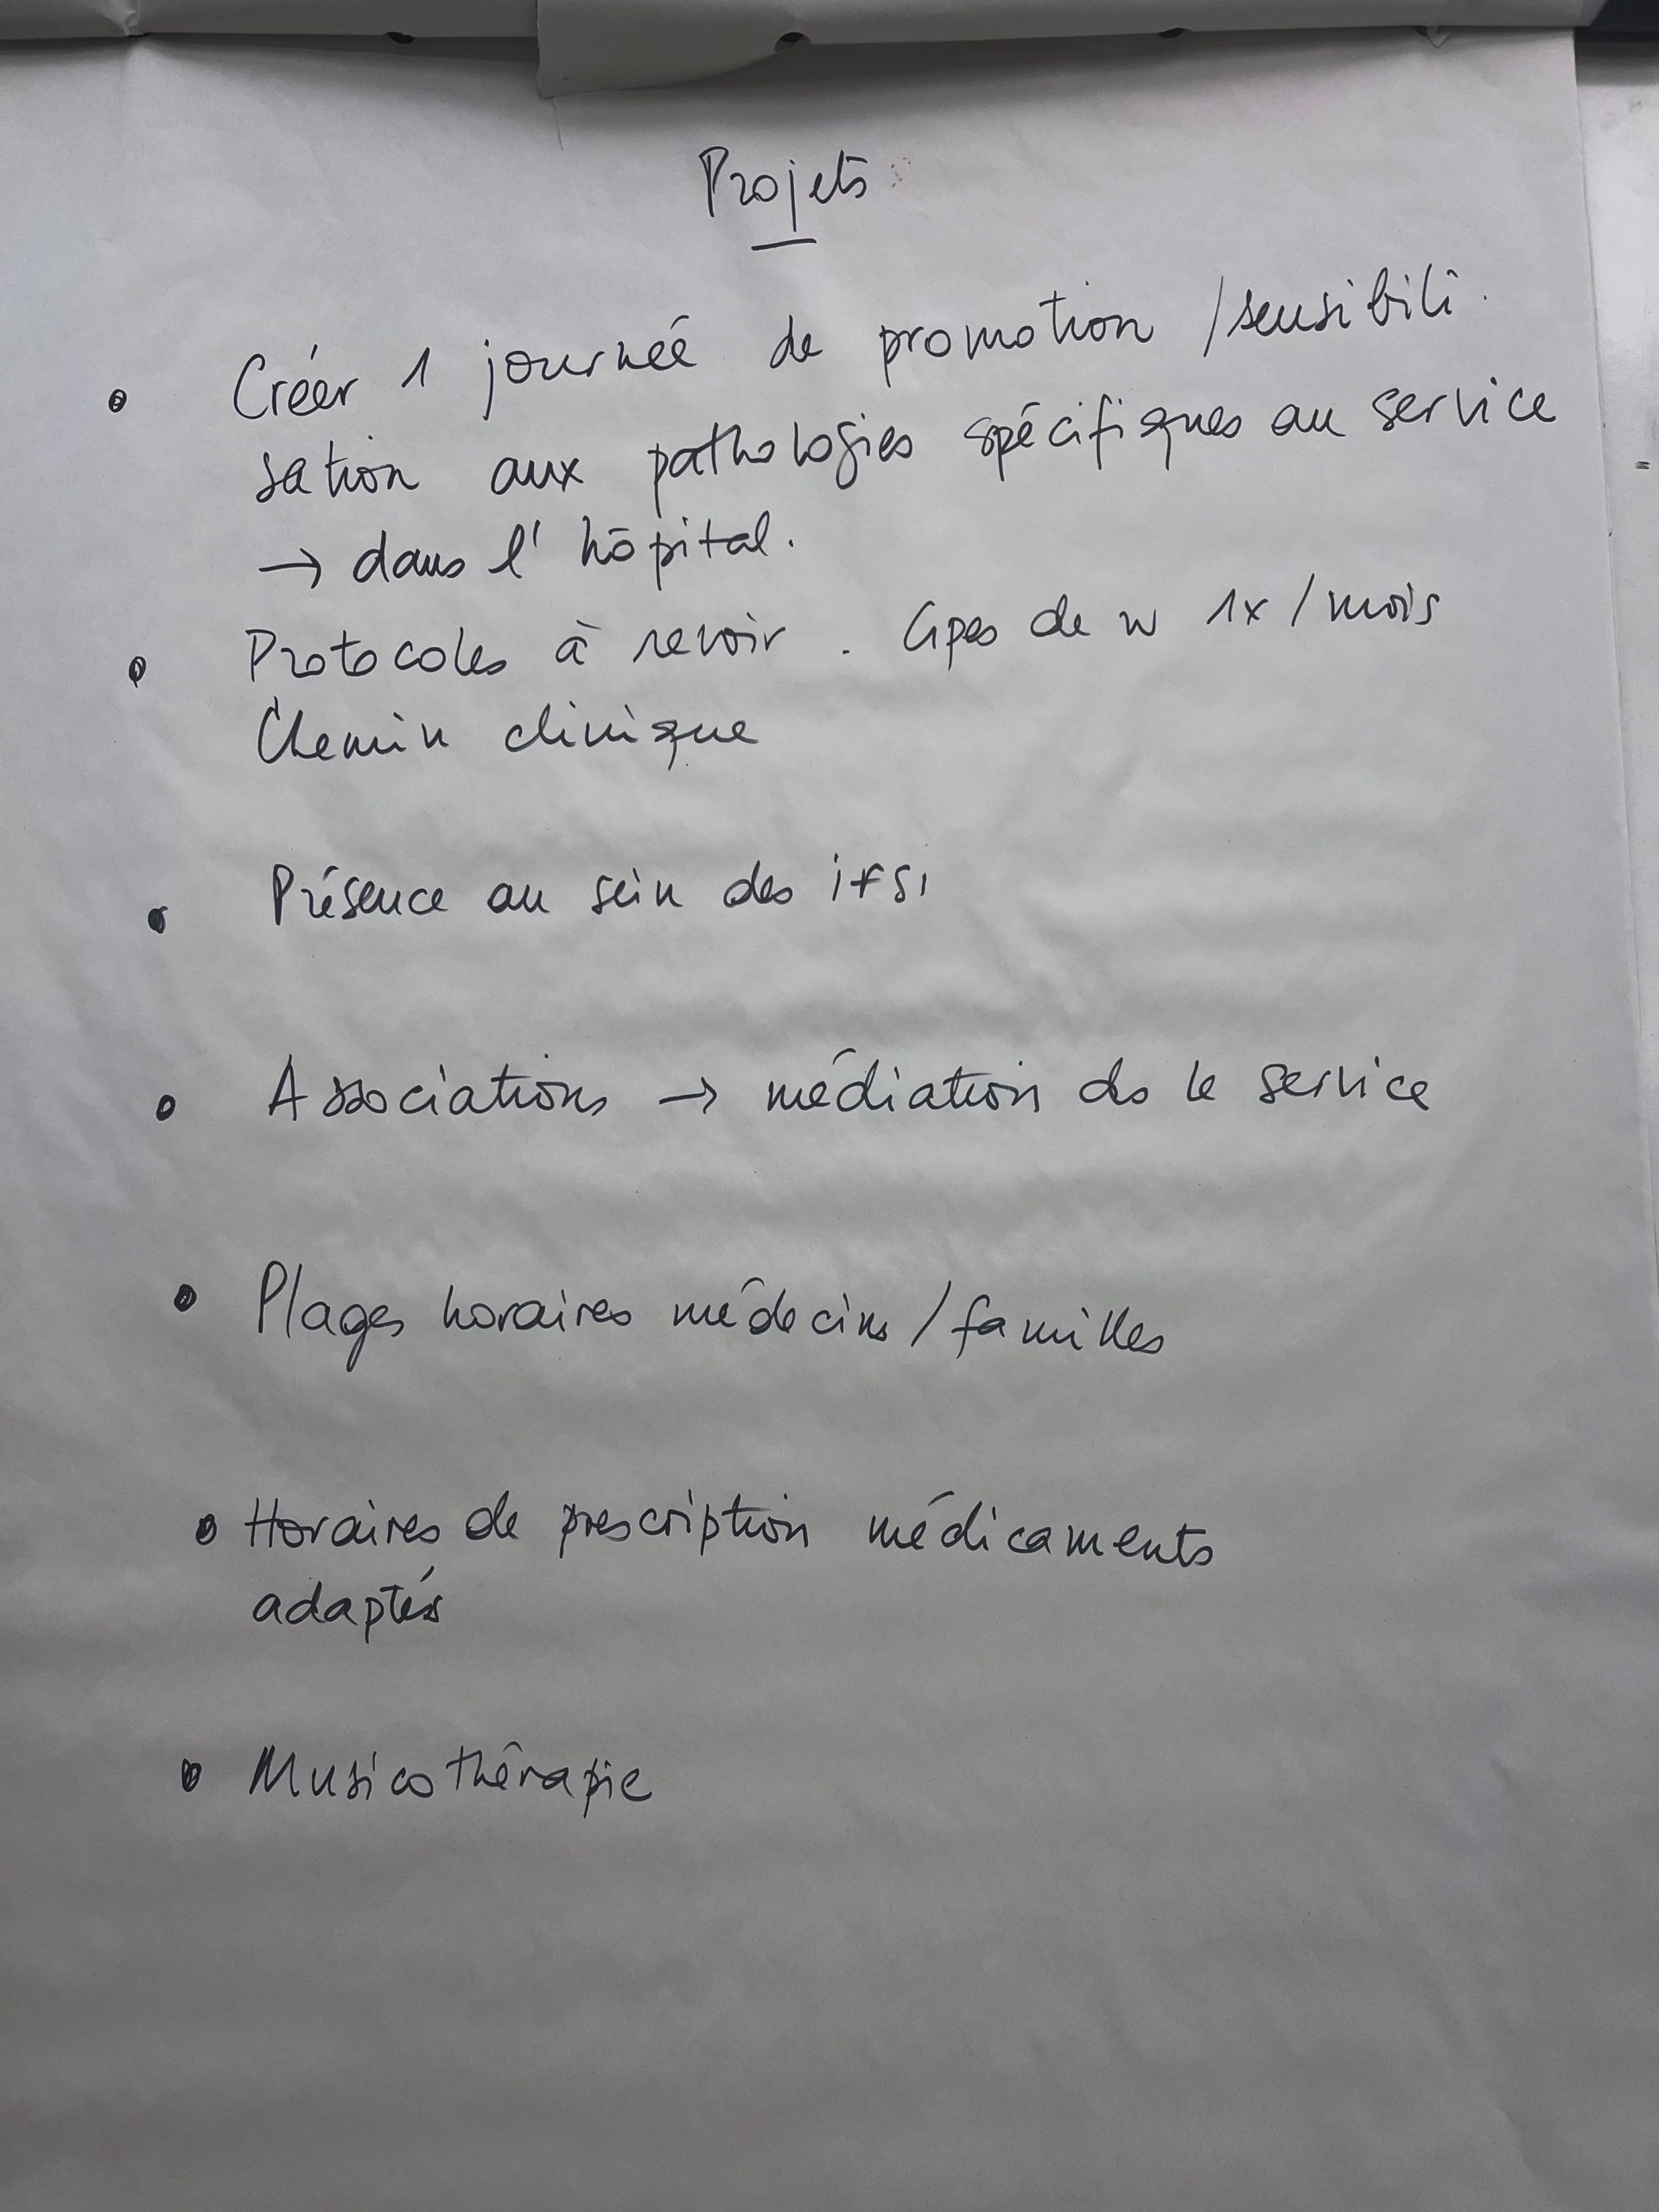 Projets
• Créer 1 journée de promotion /sensibili-
sation aux pathologies spécifiques au service
→ dans l'hôpital.
• Protocoles à revoir. Gpes de w 1x/mois
Chemin clinique
• Présence au sein des ifsi
• Associations → médiation ds le service
• Plages horaires médecins/familles
• Horaires de prescription médicaments
adaptés
• Musicothérapie